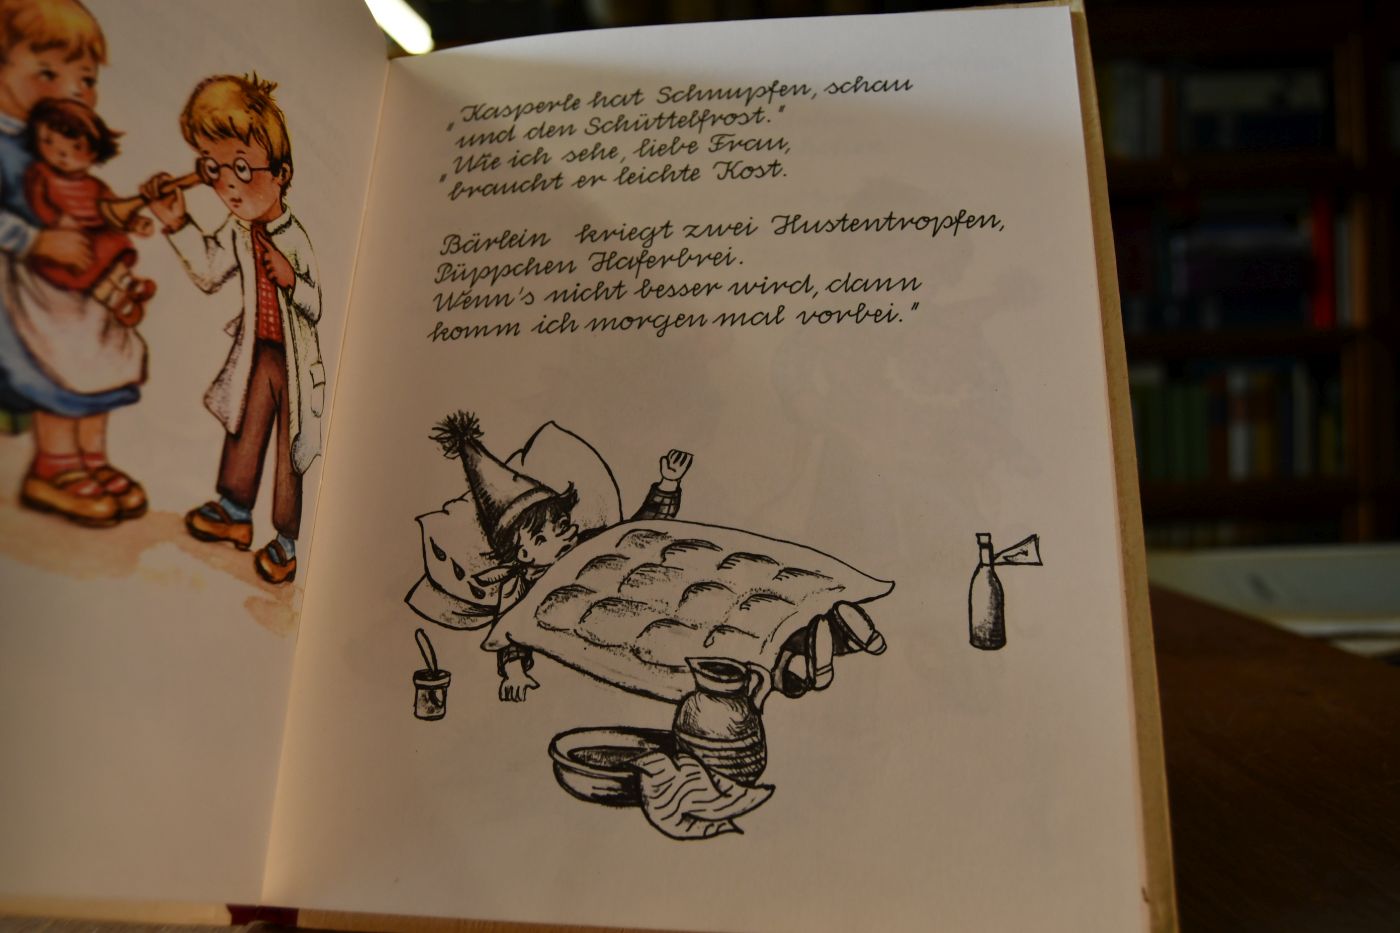 "Kasperle hat Schnupfen, schau
und den Schüttelfrost."
"Wie ich sehe, liebe Frau,
braucht er leichte Kost.
Bärlein kriegt zwei Hustentropfen,
Püppchen Haferbrei.
Wenn's nicht besser wird, dann
komm ich morgen mal vorbei."